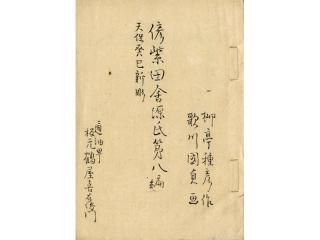 柳亭種彦作
歌川国貞画
偐紫田舎源氏第八編
天保癸巳新彫
通油町
板元鶴屋喜右衛門